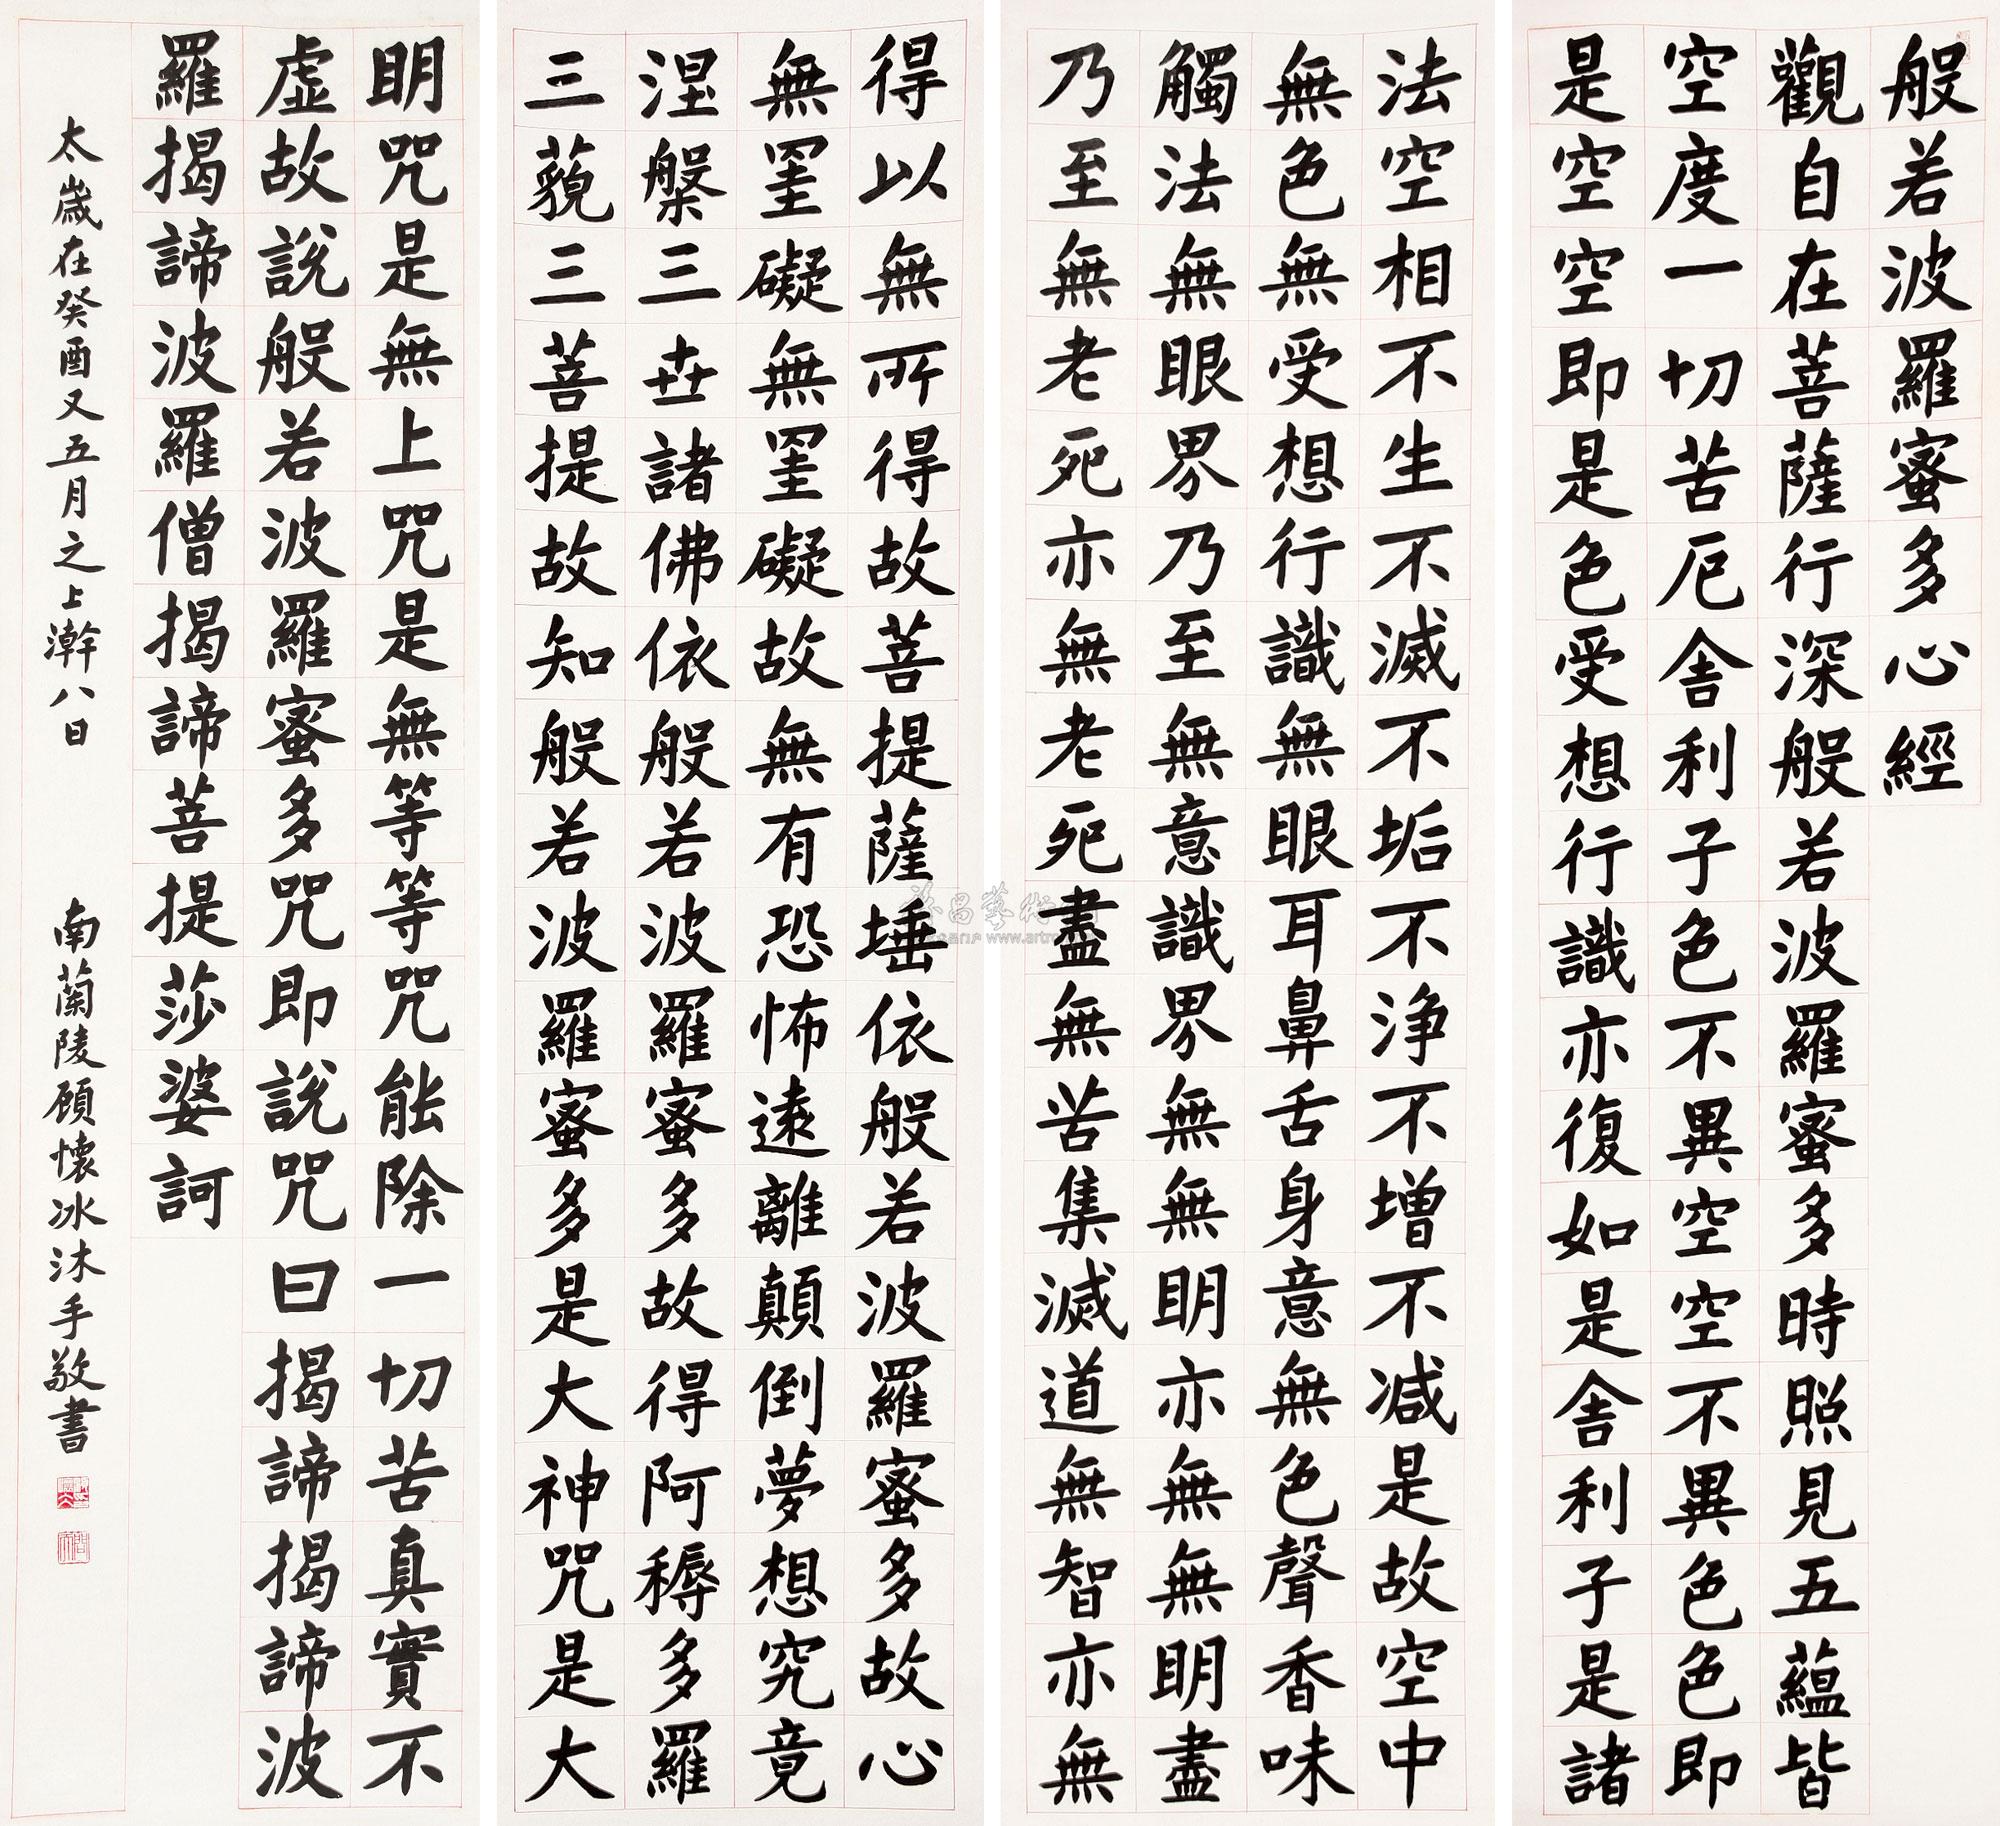 般若波羅蜜多心經
觀自在菩薩行深般若波羅蜜多時照見五蘊皆
空度一切苦厄舍利子色不異空空不異色色即
是空空即是色受想行識亦復如是舍利子是諸
法空相不生不滅不垢不净不增不减是故空中
無色無受想行識無眼耳鼻舌身意無色聲香味
觸法無眼界乃至無意識界無無明亦無無明盡
乃至無老死亦無老死盡無苦集滅道無智亦無
得以無所得故菩提薩埵依般若波羅蜜多故心
無罣礙無罣礙故無有恐怖遠離顛倒夢想究竟
涅槃三世諸佛依般若波羅蜜多故得阿耨多羅
三藐三菩提故知般若波羅蜜多是大神咒是大
明咒是無上咒是無等等咒能除一切苦真實不
虛故說般若波羅蜜多咒即說咒曰揭諦揭諦波
羅揭諦波羅僧揭諦菩提莎婆訶
太歲在癸酉又五月之上澣八日 南蘭陵顧懷冰沐手敬書